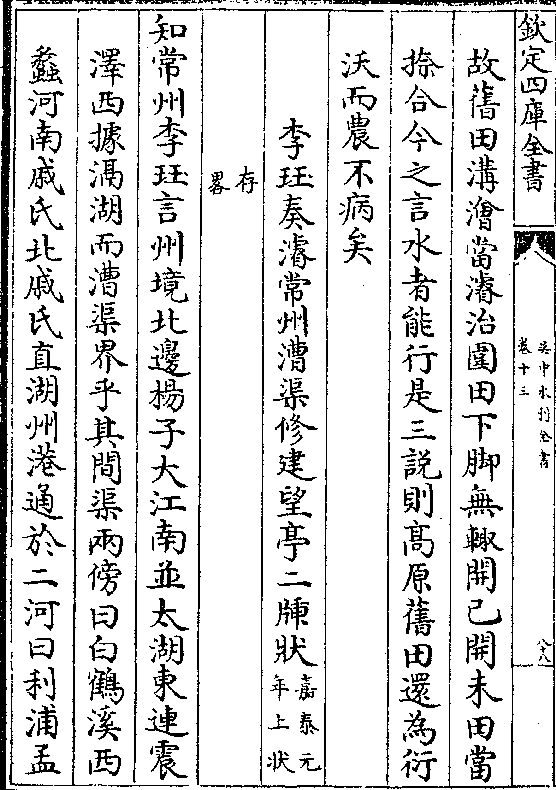 欽定四庫全書
吳中水利全書
卷十三
故舊田溝澮當濬治圍田下脚無輙開已開未田當
捺合今之言水者能行是三説則髙原舊田還為衍
沃而農不病矣
李珏奏濬常州漕渠修建望亭二牐狀
嘉泰元
年上状
存
畧
知常州李珏言州境北邊楊子大江南並太湖東連震
澤西據滆湖而漕渠界乎其間渠兩傍曰白鶴溪西
蠡河南戚氏北戚氏直湖州港通於二河曰利浦孟